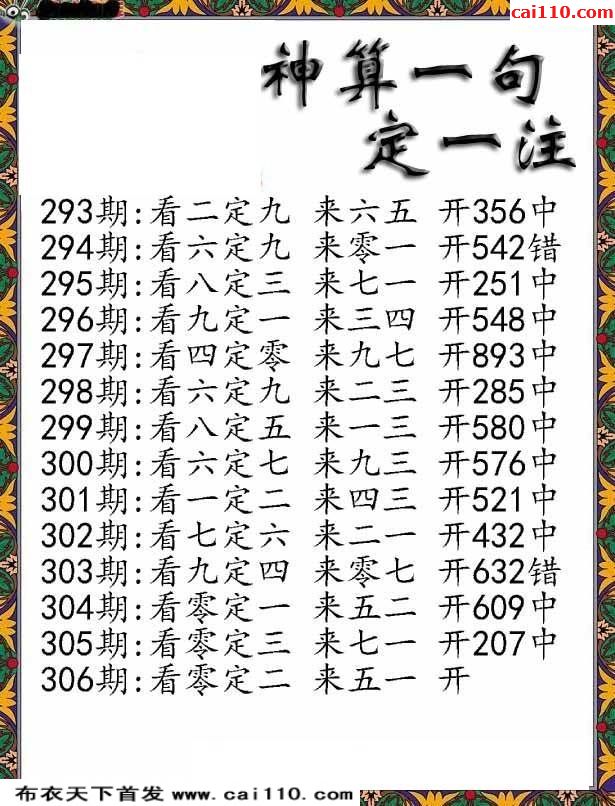 cai110.com
神算一句
定一注
293期:看二定九 来六五 开356中
294期:看六定九 来零一 开542错
295期:看八定三 来七一 开251中
296期:看九定一 来三四 开548中
297期:看四定零 来九七 开893中
298期:看六定九 来二三 开285中
299期:看八定五 来一三 开580中
300期:看六定七 来九三 开576中
301期:看一定二 来四三 开521中
302期:看七定六 来二一 开432中
303期:看九定四 来零七 开632错
304期:看零定一 来五二 开609中
305期:看零定三 来七一 开207中
306期:看零定二 来五一 开
布衣天下首发 www.cai110.com